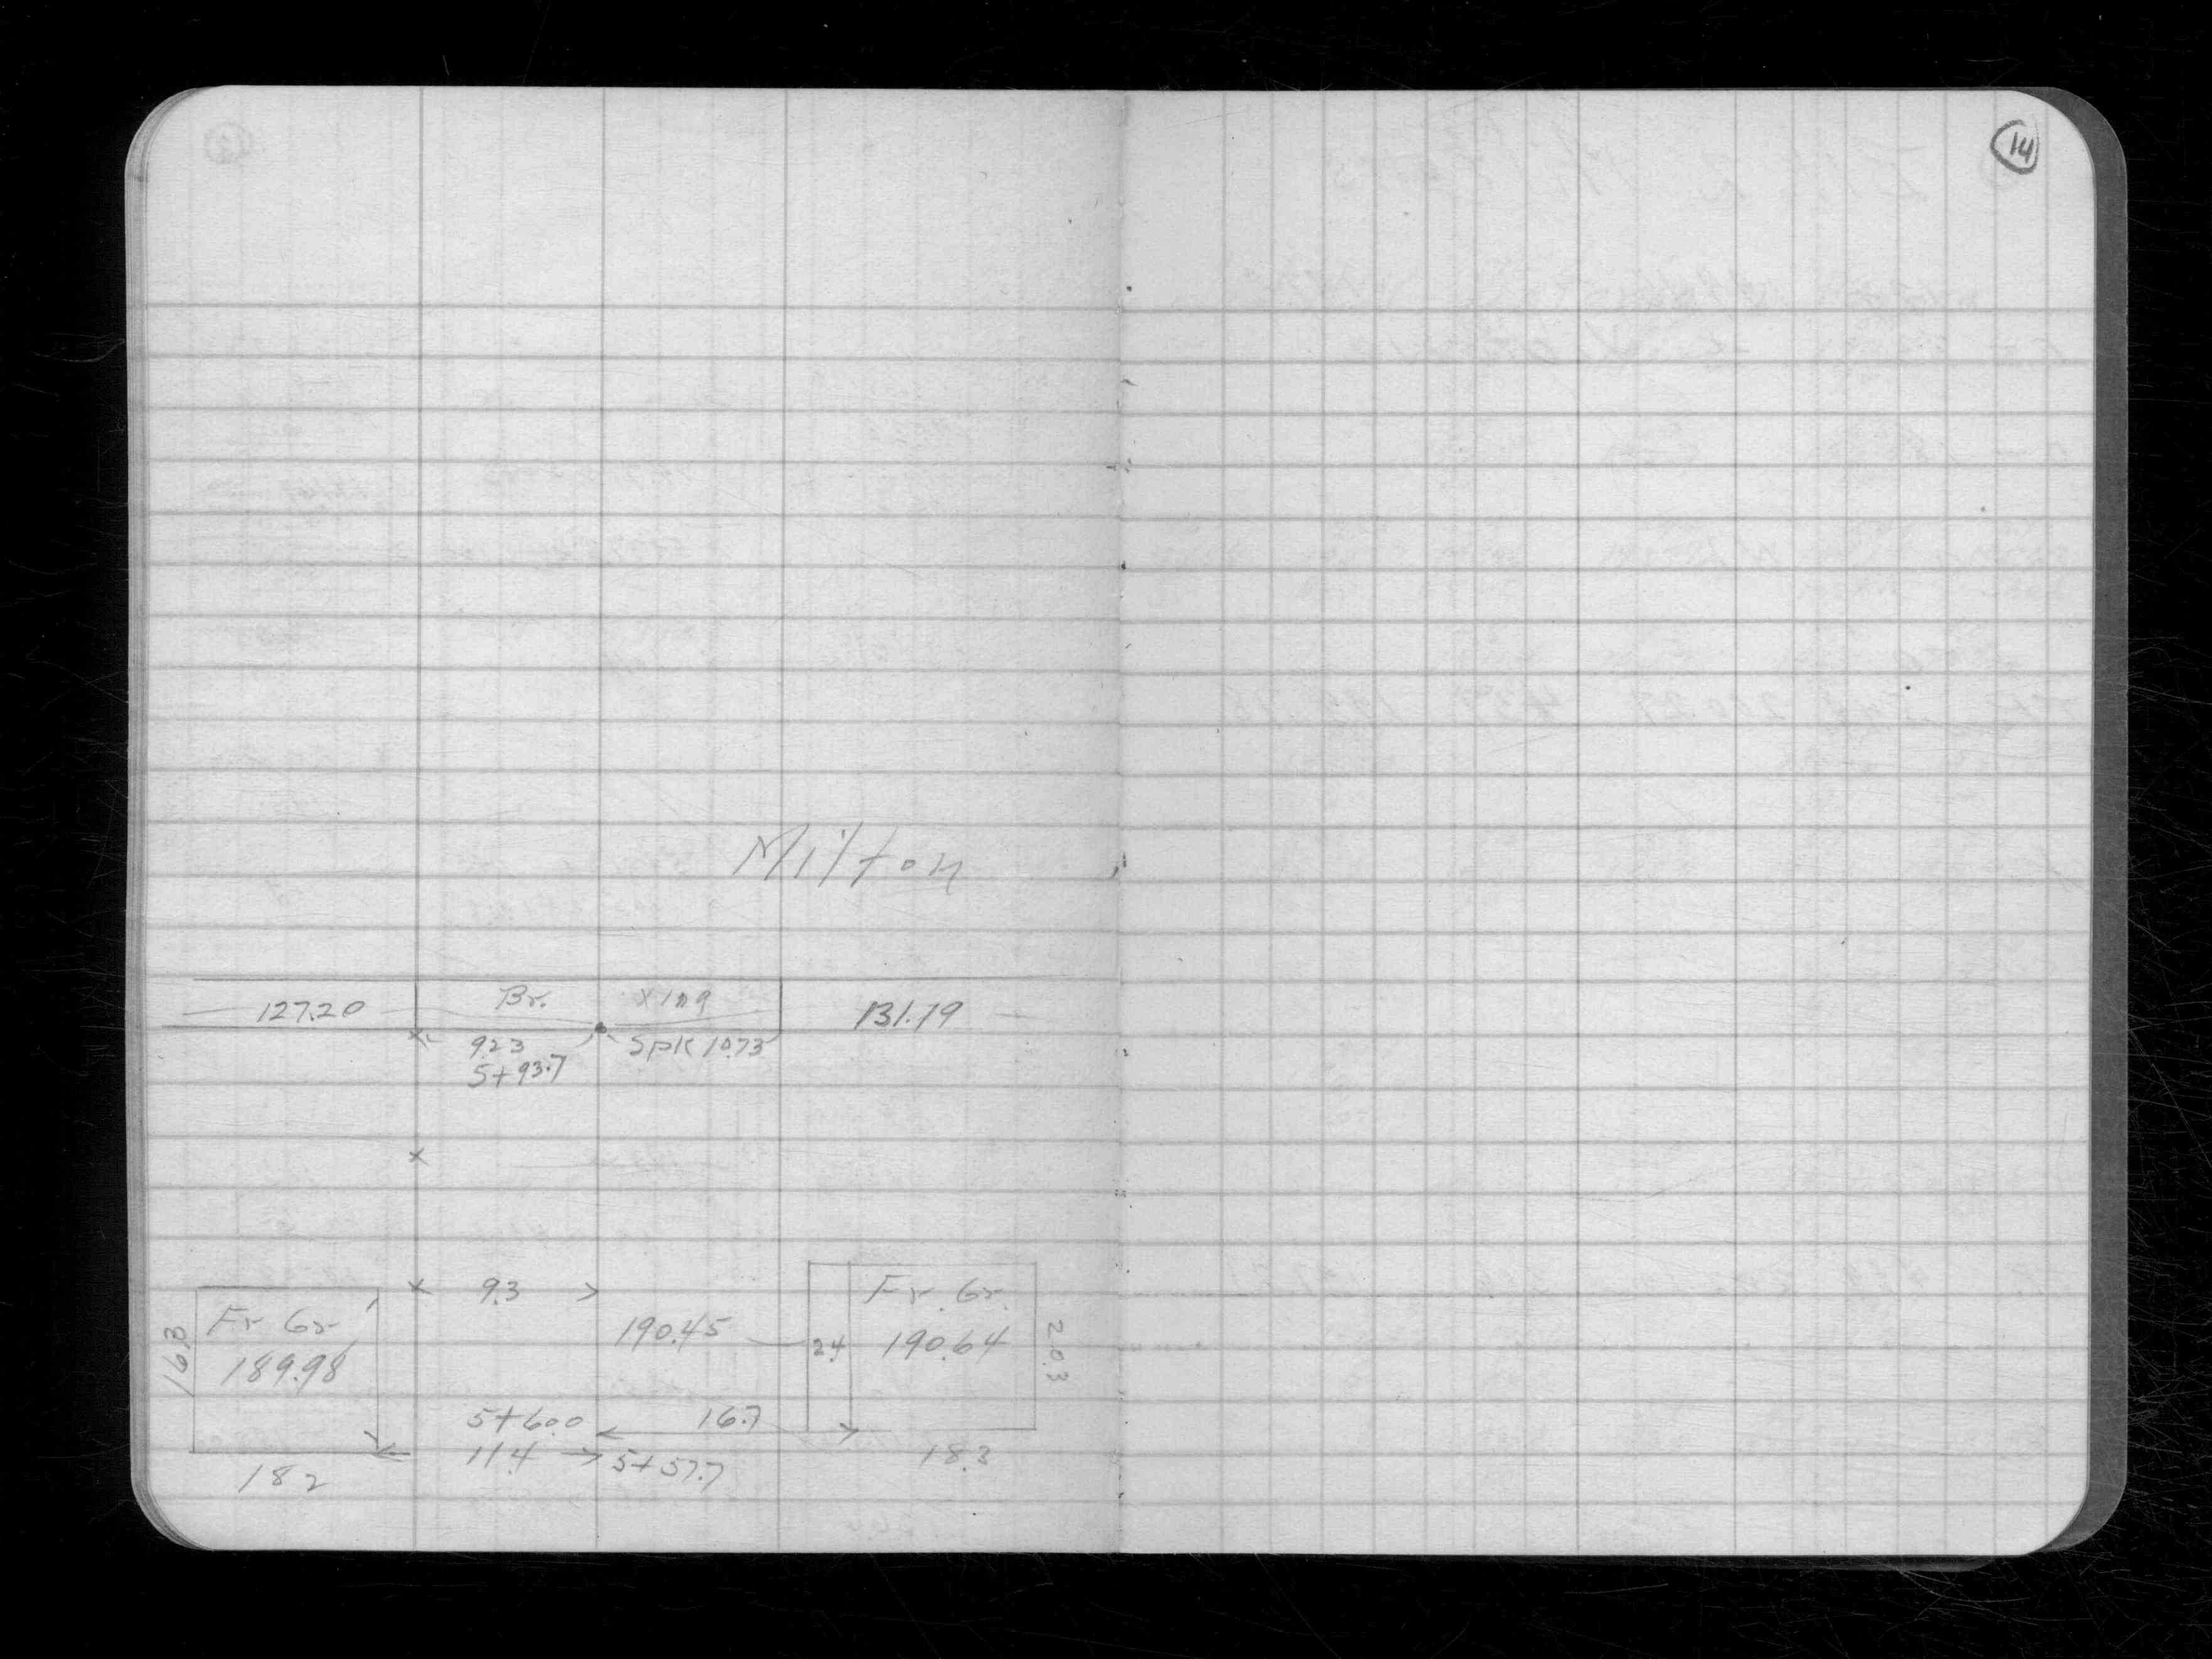 14
Milton
127.20 Br. Xing 131.79
9.23 Spk 10.73
5+93.7
9.3 Fr. Gr.
Fr Gr 190.45 24 190.64 20.3
16.3 189.98
5+60.0 16.7
11.4 5+57.7 18.3
18 2